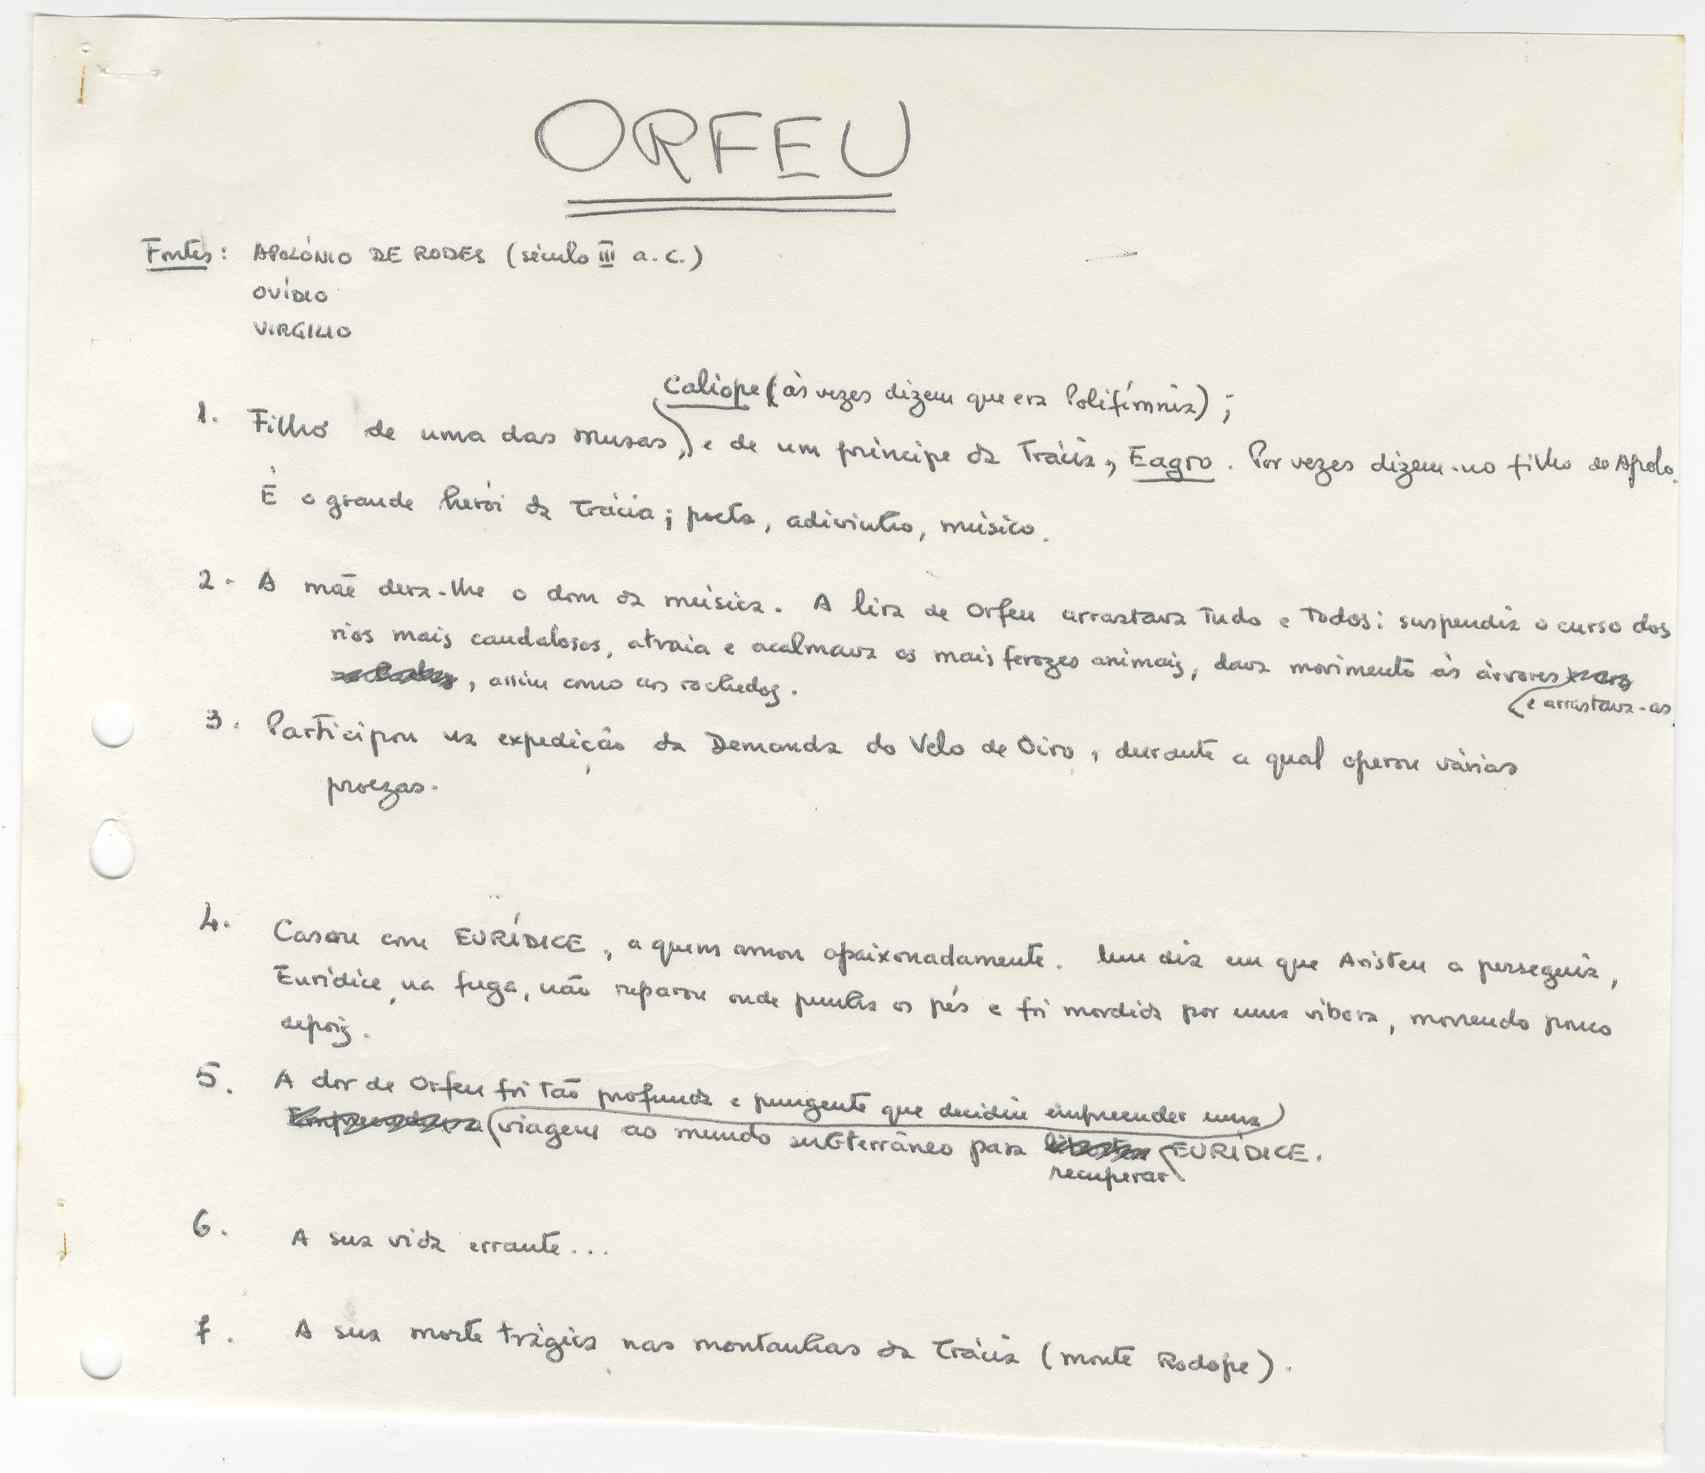 ORFEU
Fontes: APOLÓNIO DE RODES (século III a.C.)
OVÍDIO
VIRGILIO
Caliope (às vezes dizem que era Polifímnia);
1. Filho de uma das musas, e de um príncipe da Trácia, Eagro. Por vezes dizem-no filho de Apolo.
É o grande herói da Trácia; poeta, adivinho, músico.
2. A mãe dera-lhe o dom da música. A lira de Orfeu arrastava tudo e todos: suspendia o curso dos
rios mais caudalosos, atraia e acalmava os mais ferozes animais, dava movimento às árvores
e arrastava-as
, assim como aos rochedos.
3. Participou na expedição da Demanda do Velo de Oiro, durante a qual operou várias
proezas.
4. Casou com EURÍDICE, a quem amou apaixonadamente. Um dia em que Aristeu a perseguia,
Eurídice, na fuga, não reparou onde punha os pés e foi mordida por uma vibora, morrendo pouco
depois.
5. A dor de Orfeu foi tão profunda e pungente que decidiu empreender uma
viagem ao mundo subterrâneo para EURÍDICE.
recuperar
6. A sua vida errante...
7. A sua morte trágica nas montanhas da Trácia (monte Rodope).